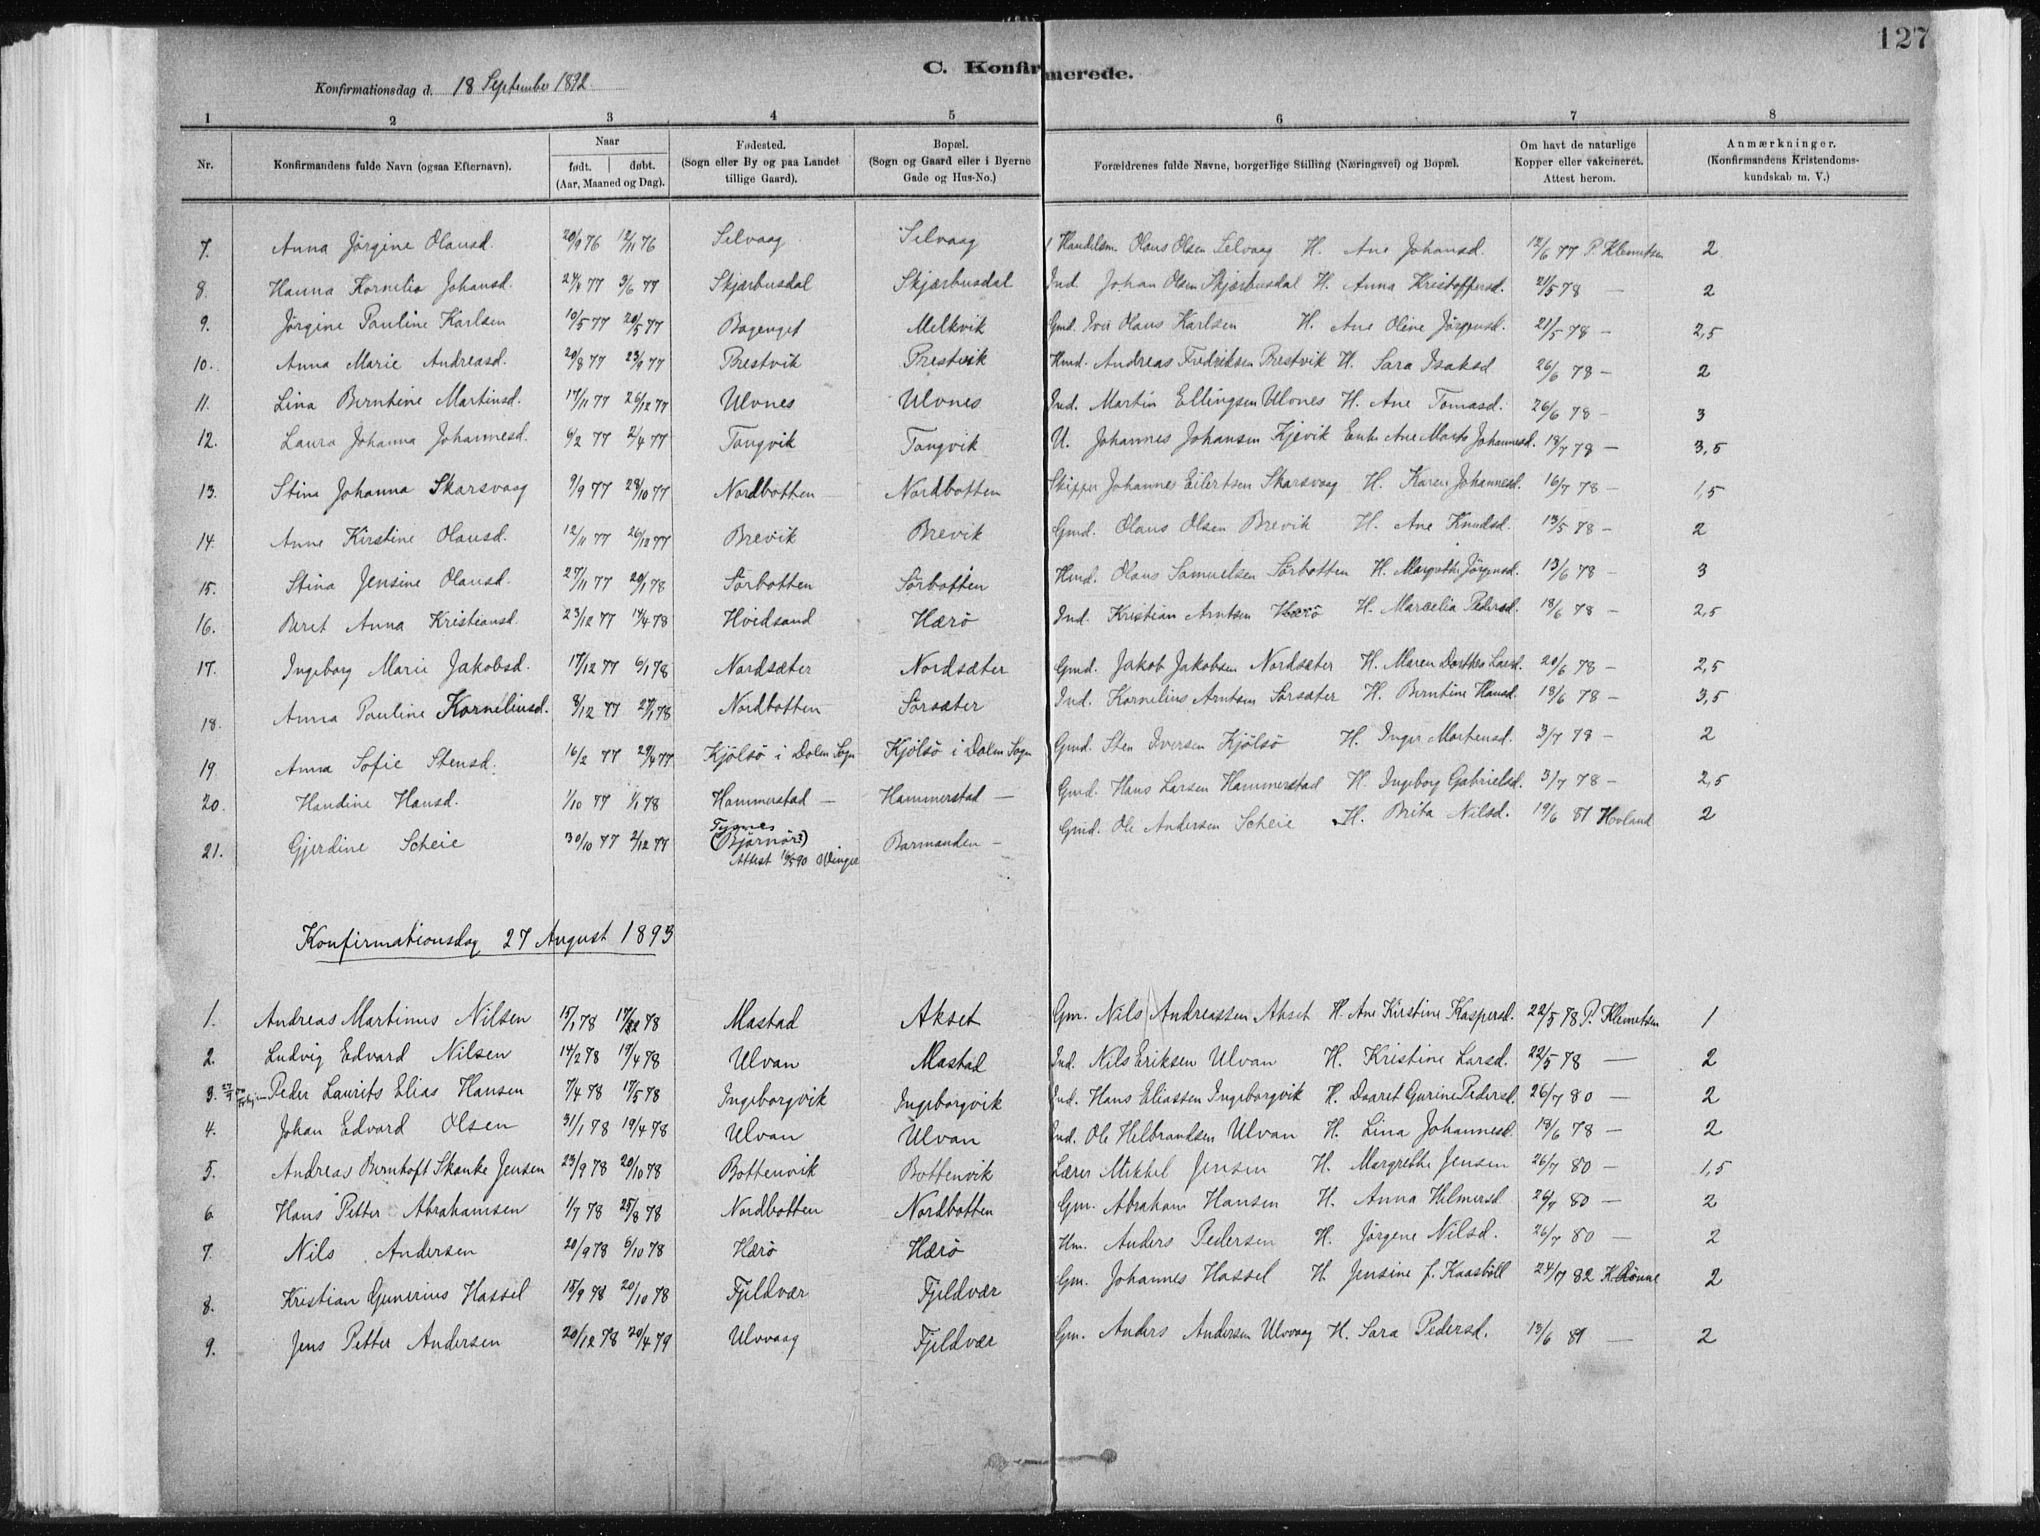 127
C. Konfirmerede.
Konfirmationsdag d. 18 September 1892.
1 2 3 4 5 6 7 8
Nr. Konfirmandens fulde Navn (ogsaa Efternavn). Naar født. døbt. (Aar, Maaned og Dag). Fødested. (Sogn eller By og paa Landet tillige Gaard). Bopæl. (Sogn og Gaard eller i Byerne Gade og Hus-No.) Forældrenes fulde Navne, borgerlige Stilling (Næringsvei) og Bopæl. Om havt de naturlige Kopper eller vakcineret. Attest herom. Anmærkninger. (Konfirmandens Kristendomskundskab m. V.)
7. Anna Jörgine Olausd. 20/9 76 12/11 76 Selvaag Selvaag Handelsm. Olaus Olsen Selvaag H. Ane Johansd. 12/6 77 P. Klemetsen 2
8. Hanna Kornelia Johansd. 24/4 77 3/6 77 Skjærbusdal Skjærbusdal Ind. Johan Olsen Skjærbusdal H. Anna Kristoffersd. 21/5 78 — 2
9. Jörgine Pauline Karlsen 10/5 77 20/5 77 Bogenget Melkvik Gmd. Iver Olaus Karlsen H. Ane Oline Jörgensd. 21/5 78 — 2,5
10. Anna Marie Andreasd. 20/8 77 23/9 77 Prestvik Prestvik Hmd. Andreas Fredriksen Prestvik H. Sara Isaksd 26/6 78 — 2
11. Lina Berntine Martinsd. 17/11 77 26/12 77 Ulvnes Ulvnes Ind. Martin Ellingsen Ulvnes H. Ane Tomasd. 26/6 78 — 3
12. Laura Johanna Johannesd. 6/2 77 2/4 77 Tangvik Tangvik U. Johannes Johansen Kjevik Enke Ane Marta Johannesd. 18/7 78 — 3,5
13. Stina Johanna Skarsvaag 9/9 77 28/10 77 Nordbotten Nordbotten Skipper Johannes Eilertsen Skarsvaag H. Karen Johannesd. 16/7 78 — 1,5
14. Anne Kirstine Olausd. 12/11 77 26/12 77 Brevik Brevik Gmd. Olaus Olsen Brevik H. Ane Knudsd. 13/5 78 — 2
15. Stina Jensine Olausd. 27/11 77 20/1 78 Sörbotten Sörbotten Hmd. Olaus Samuelsen Sörbotten H. Margrethe Jörgensd. 13/6 78 — 3
16. Beret Anna Kristiansd. 23/12 77 14/4 78 Hvidsand Hærö Ind. Kristian Arntsen Hærö H. Marcelia Pedersd. 18/6 78 — 2,5
17. Ingeborg Marie Jakobsd. 17/12 77 6/1 78 Nordsæter Nordsæter Gmd. Jakob Jakobsen Nordsæter H. Maren Dorthea Larsd. 20/6 78 — 2,5
18. Anna Pauline Korneliusd. 8/12 77 27/1 78 Nordbotten Sörsæter Ind. Kornelius Arntsen Sörsæter H. Berntine Hansd. 18/6 78 — 3,5
19 Anna Sofie Stensd. 16/2 77 29/4 77 Kjölsö i Dolm Sogn Kjölsö i Dolm Sogn Gmd. Sten Iversen Kjölsö H. Inger Mortensd. 3/7 78 — 2
20. Handine Hansd. 1/10 77 1/1 78 Hammerstad — Hammerstad — Gmd. Hans Larsen Hammerstad H. Ingeborg Gabrielsd. 3/7 78 — 2,5
21. Gjerdine Scheie 30/10 77 2/12 77 (Bjørnør?) Attest Barmanden — Gmd. Ole Andersen Scheie H. Brita Nilsd. 19/6 81 Hovland 2
Konfirmationsdag 27 August 1893
1. Andreas Martinus Nilsen 15/1 78 78 Mastad Akset Gm. Nils Andreassen Akset H. Ane Kirstine Kaspersd. 22/5 78 P. Klemetsen 1
2. Ludvig Edvard Nilsen 14/2 78 19/4 78 Ulvan Mastad Ind. Nils Eriksen Ulvan H. Kristine Larsd. 22/5 78 — 2
3. Peder Laurits Elias Hansen 7/4 78 17/5 78 Ingeborgvik Ingeborgvik Ind. Hans Eliassen Ingeborgvik H. Daaret Gurine Pedersd. 26/7 80 — 2
4. Johan Edvard Olsen 31/1 78 19/4 78 Ulvan Ulvan Ind. Ole Helbrandsen Ulvan H. Lina Johannesd. 18/6 78 — 2
5. Andreas Bernhoft Skanke Jensen 23/9 78 20/10 78 Bottenvik Bottenvik Lærer Mikkel Jensen H. Margrethe Jensen 26/7 80 — 1,5
6. Hans Petter Abrahamsen 1/7 78 25/8 78 Nordbotten Nordbotten Gm. Abraham Hansen H. Anna Helmersd. 26/7 80 — 2
7. Nils Andersen 20/9 78 6/10 78 Hærö Hærö Hm. Anders Pedersen H. Jörgene Nilsd. 26/7 80 — 2
8. Kristian Gunerius Hassel 15/9 78 20/10 78 Fjeldvær Fjeldvær Gm. Johannes Hassel H. Jensine f. Kaasböll 24/7 82 K Rönne 2
9. Jens Petter Andersen 20/12 78 20/4 79 Ulvvaag Fjeldvær Gm. Anders Andersen Ulvvaag H. Sara Pedersd. 13/6 81 — 2